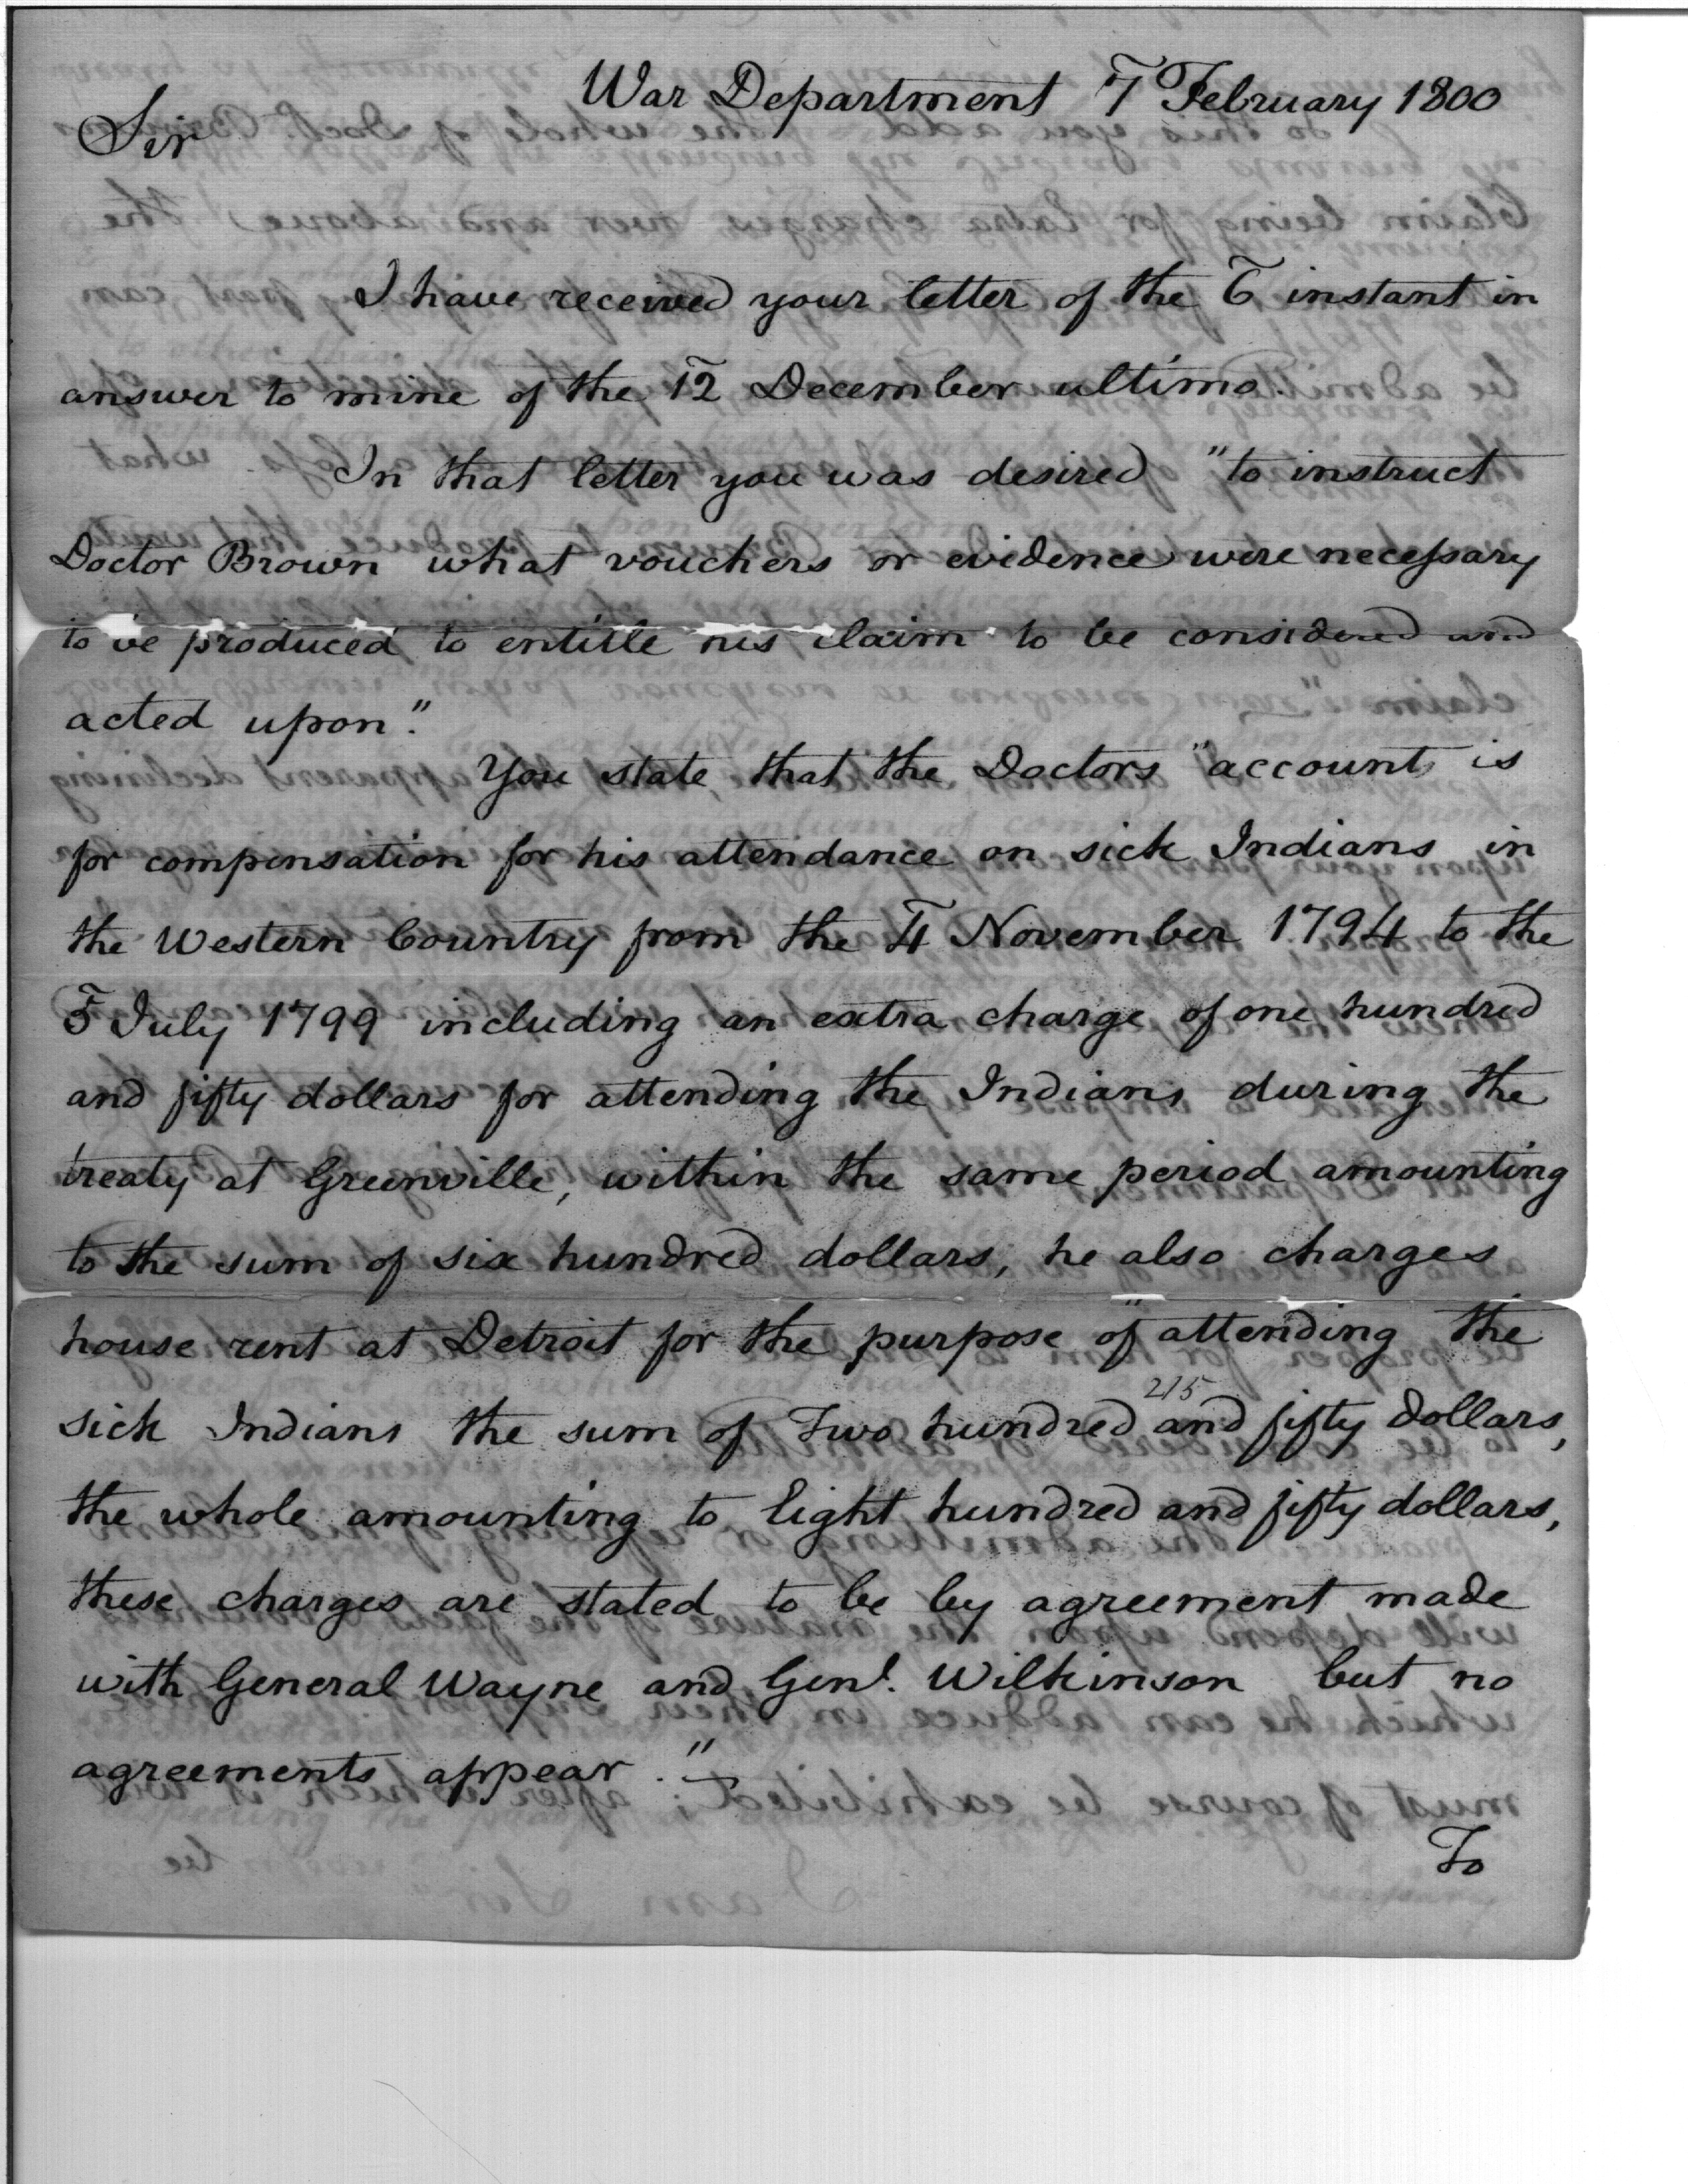 War Department 7 February 1800
Sir
I have received your letter of the 6 instant in
answer to mine of the 12 December ultimo.
In that letter you was desired "to instruct
Doctor Brown what vouchers or evidence were necessary
to be produced to entitle his claim to be considered and
acted upon."
You state that the Doctors "account is
for compensation for his attendance on sick Indians in
the Western Country from the 4 November 1794 to the
5 July 1799 including an extra charge of one hundred
and fifty dollars for attending the Indians during the
treaty at Greenville, within the same period amounting
to the sum of six hundred dollars, he also charges
house rent at Detroit for the purpose of "attending the
sick Indians the sum of Two hundred and fifty dollars,
215
the whole amounting to Eight hundred and fifty dollars,
these charges are stated to be by agreement made
with General Wayne and Genl. Wilkinson but no
agreements appear."
To